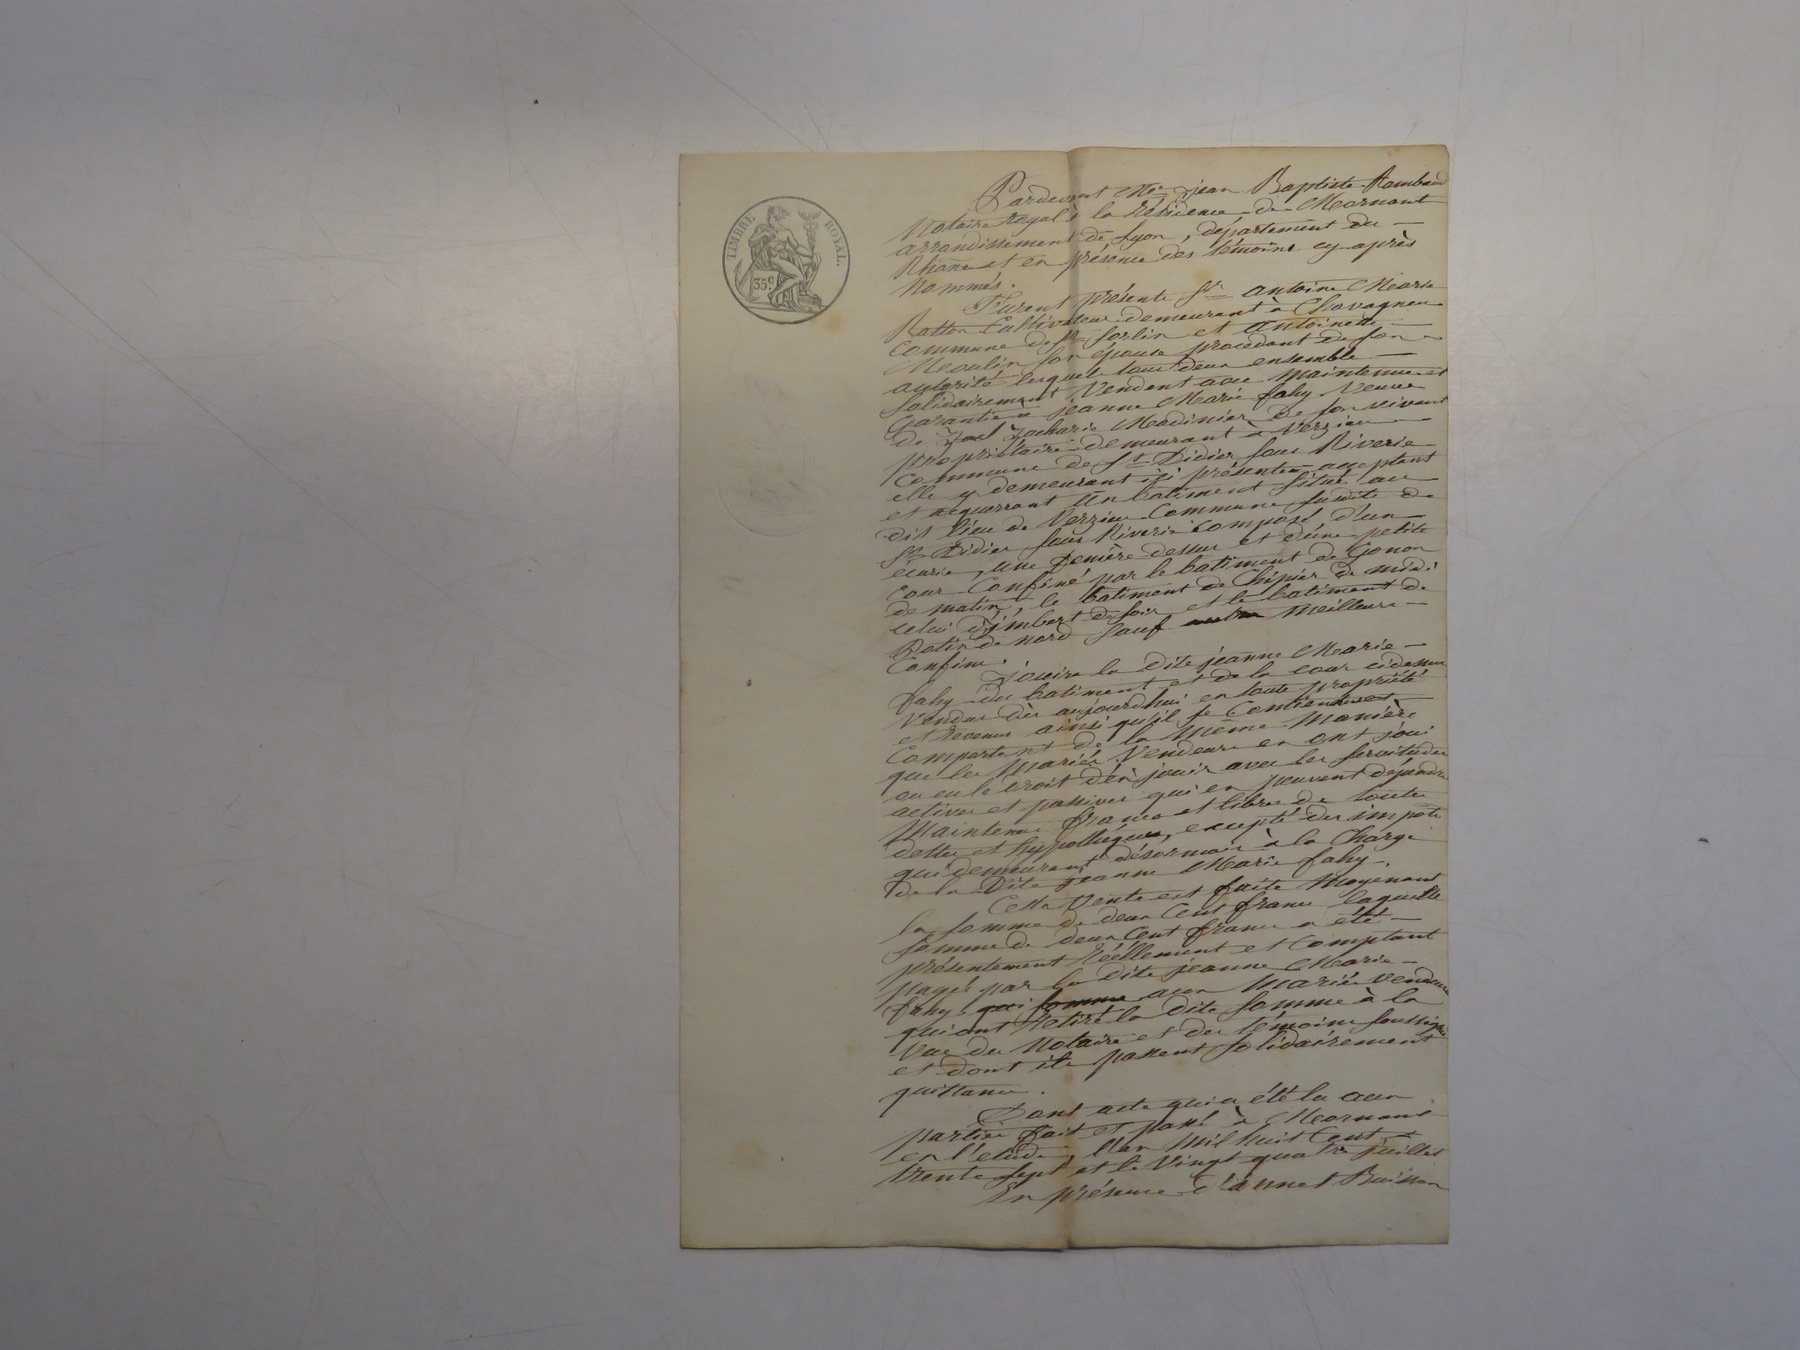 TIMBRE ROYAL.
35c
Pardevant Me jean Baptiste Rambaud
Notaire royal à la résidence de Mornant
arrondissement de Lyon, département du
Rhône et en présence des témoins cy après
nommés.
Furent présents Sr antoine Marie
Ratton Cultivateur demeurant à Chavagneu
Commune de St Sorlin et antoinette
Moulin son épouse procédant de son
autorité lesquels tous deux ensemble
solidairement vendent avec maintenue et
Garantie à jeanne Marie fahy veuve
de Zacharie Madinier de son vivant
propriétaire demeurant à Verzieu
Commune de St Didier sous Riverie
elle y demeurant ici présente acceptant
et acquerrant Un batiment situé au
dit lieu de Verzieu Commune susdite de
St Didier sous Riverie composé d'un
écurie, une fenière dessus et d'une petite
cour Confiné par le batiment de Gonon
de matin, le batiment de Chipier de midi
celui d'jmbert de soir et le batiment de
Ratin de nord sauf meilleurs
Confins.
jouira la dite jeanne Marie
fahy du batiment et de la cour cidessus
vendus dès aujourdhui en toute propriété
et revenus ainsi qu'il se Contiennent
Comportent de la même manière
que les mariés vendeurs en ont joui
ou eu le droit d'en jouir avec les servitudes
actives et passives qui en peuvent dépendre
Maintenus francs et libres de toutes
dettes et hypothèques, excepté des impots
qui demeurent désormais à la Charge
de la dite jeanne Marie fahy.
Cette vente est faite moyenant
la somme de deux Cent francs laquelle
somme de deux Cent francs a été
présentement réellement et Comptant
payée par la dite jeanne Marie
fahy qui somme aux mariés vendeurs
qui ont retiré la dite somme à la
vue du Notaire et des témoins soussignés
et dont ils passent solidairement
quittance.
Dont acte qui a été lu aux
parties fait et passé à Mornant
en l'etude, l'an mil huit Cent
trente sept et le vingt quatre juillet
En présence d'annet Buisson